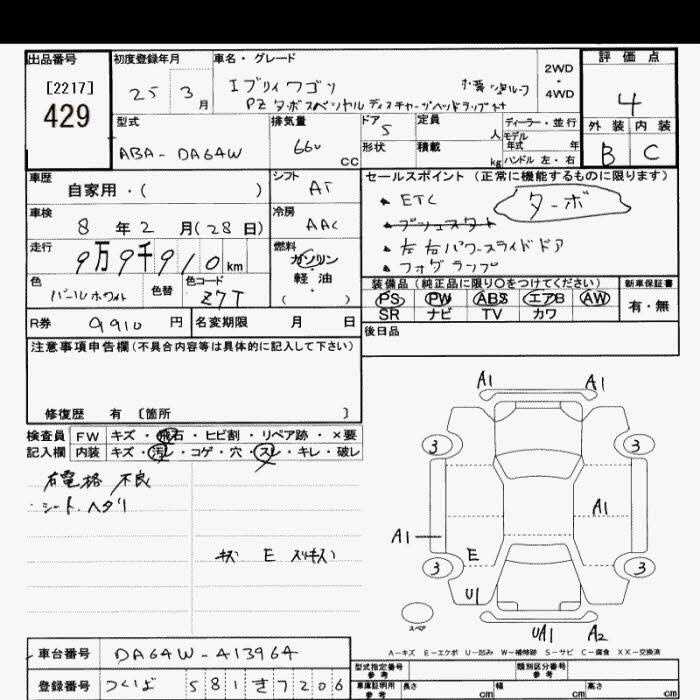 出品番号
[2217]
429
初度登録年月
25 3月
車名・グレード
エブリィワゴン
PZターボスペシャル ディスチャージヘッドランプ付
2WD
・
4WD
評価点
4
外装 内装
B C
型式
ABA-DA64W
排気量
660 CC
ドア 5
形状
定員 人
積載 kg
ディーラー・並行
モデル年式 年
ハンドル 左・右
車歴
自家用・( )
シフト
AT
車検
8年2月(28日)
冷房
AAC
走行
9万9千910km
燃料
ガソリン
・
軽油
( )
色
パールホワイト
色替
色コード
Z7T
R券 9910円
名変期限 月 日
セールスポイント (正常に機能するものに限ります)
ETC
ターボ
プッシュスタート
左右パワースライドドア
フォグランプ
装備品 (純正品に限り○をつけてください)
PS PW ABS エアB AW
SR ナビ TV カワ
新車保証書
有・無
後日品
注意事項申告欄(不具合内容等は具体的に記入して下さい)
修復歴 有 [箇所 ]
検査員記入欄
FW キズ・飛石・ヒビ割・リペア跡・×要
内装 キズ・汚レ・コゲ・穴・スレ・キレ・破レ
右電格 不良
シート ヘタリ
キズ E スリキズ
A1 A1
3 3
A1
A1
E
3 3
U1
UA1 A2
スペア
A-キズ E-エクボ U-凹み W-補修跡 S-サビ C-腐食 XX-交換済
車台番号
DA64W-413964
登録番号
つくば 581 き 7206
型式指定番号
参考
類別区分番号
参考
車庫証明用
参考
長さ cm
幅 cm
高さ cm